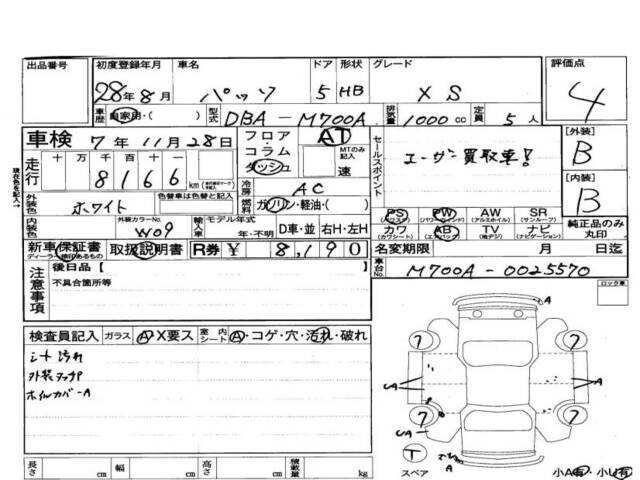 出品番号 初度登録年月 車名 ドア 形状 グレード 評価点
28年8月 パッソ 5 HB XS 4
車歴 自家用・( ) 型式 DBA-M700A 排気量 1000cc 定員 5人
車検 7年11月28日 フロア コラム ダッシュ AT MTのみ記入 速
走行 十 万 千 百 十 一
8166 km
セールスポイント ユーザー買取車!
[外装] B
[内装] B
外装色 ホワイト 冷房 AC
燃料 ガソリン・軽油・( )
内装色 外装カラーNo. W09 輸入車 モデル年式 年・不明 D車・並 右H・左H
PS (パワステ) PW (パワーウインドウ) AW (アルミホイル) SR (サンルーフ)
カワ (カワシート) AB (エアバック) TV (地デジ) ナビ (ナビゲーション)
純正品のみ丸印
新車保証書 取扱説明書 R券 ¥ 8,190
名変期限 月 日迄
注意事項 後日品【
不具合箇所等
車台No. M700A-0025570
ロック車
検査員記入 ガラス A・X要ス 室内シート A・コゲ・穴・汚れ・破れ
シート汚れ
外装タッチP
ホイルカバーA
A
7 7
UA A
7 7
UA
T
スペア
A
小A有・小U有
長さ cm 幅 cm 高さ cm 積載量 kg